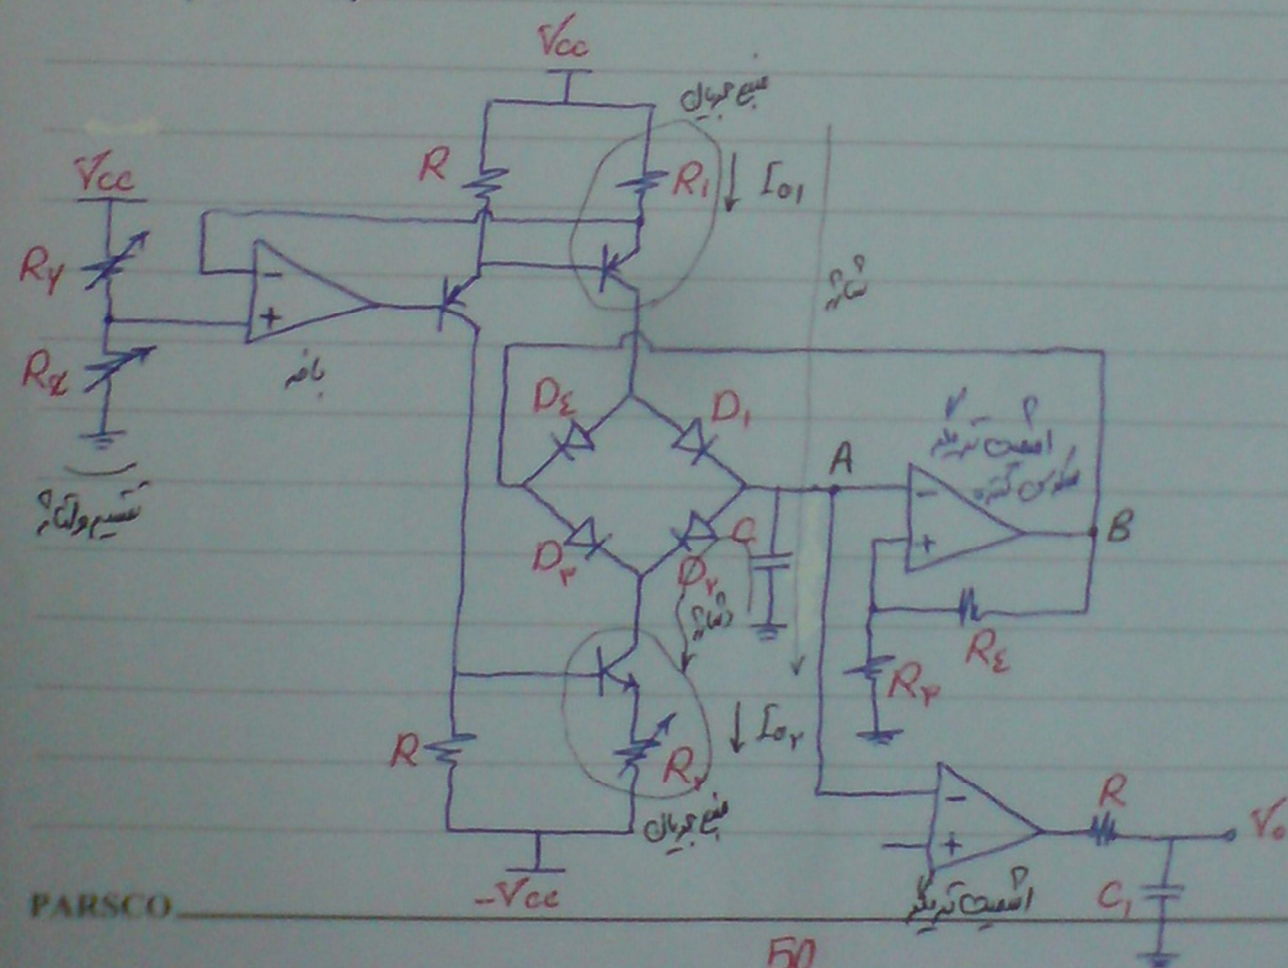 Vcc
منبع جریان
Vcc
R
R₁
↓ I₀₁
Ry
Rx
-
+
بافر
تقسیم ولتاژ
شارژ
D٤
D₁
D٣
D٢
C
دشارژ
A
B
اشمیت تریگر
معکوس کننده
-
+
R٤
R٣
R
R٢
↓ I₀٢
منبع جریان
-Vcc
-
+
اشمیت تریگر
R
C₁
V₀
PARSCO
50